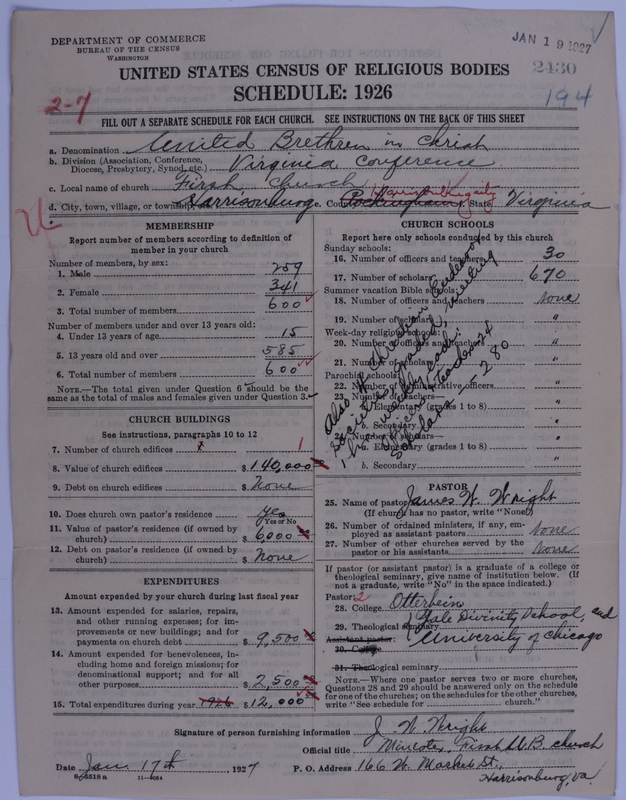 DEPARTMENT OF COMMERCE
BUREAU OF THE CENSUS
WASHINGTON
JAN 19 1927
UNITED STATES CENSUS OF RELIGIOUS BODIES
SCHEDULE: 1926
2430
2-7
194
FILL OUT A SEPARATE SCHEDULE FOR EACH CHURCH. SEE INSTRUCTIONS ON THE BACK OF THIS SHEET
a. Denomination United Brethren in Christ
b. Division (Association, Conference, Diocese, Presbytery, Synod, etc.) Virginia Conference
c. Local name of church First Church
d. City, town, village, or township Harrisonburg e. County Rockingham f. State Virginia
MEMBERSHIP
Report number of members according to definition of
member in your church
Number of members, by sex:
1. Male 259
2. Female 341
3. Total number of members 600
Number of members under and over 13 years old:
4. Under 13 years of age 15
5. 13 years old and over 585
6. Total number of members 600
NOTE.—The total given under Question 6 should be the
same as the total of males and females given under Question 3.
CHURCH BUILDINGS
See instructions, paragraphs 10 to 12
7. Number of church edifices 1
8. Value of church edifices $140,000
9. Debt on church edifices $ None
10. Does church own pastor's residence Yes
Yes or No
11. Value of pastor's residence (if owned by
church) $ 6000
12. Debt on pastor's residence (if owned by
church) $ None
EXPENDITURES
Amount expended by your church during last fiscal year
13. Amount expended for salaries, repairs,
and other running expenses; for im-
provements or new buildings; and for
payments on church debt $ 9,500
14. Amount expended for benevolences, in-
cluding home and foreign missions; for
denominational support; and for all
other purposes $ 2,500
15. Total expenditures during year 1926 $ 12,000
CHURCH SCHOOLS
Report here only schools conducted by this church
Sunday schools:
16. Number of officers and teachers 30
17. Number of scholars 670
Summer vacation Bible schools:
18. Number of officers and teachers None
19. Number of scholars "
Week-day religious schools:
20. Number of officers and teachers "
21. Number of scholars "
Parochial schools:
22. Number of administrative officers "
23. Number of teachers—
a. Elementary (grades 1 to 8) "
b. Secondary "
24. Number of scholars—
a. Elementary (grades 1 to 8) "
b. Secondary "
Also 4 Christian Endeavor
Societies, graded, meeting
1 hr. weekly each:
Officers & teachers 24
Scholars — 280
PASTOR
25. Name of pastor James W. Wright
(If church has no pastor, write "None")
26. Number of ordained ministers, if any, em-
ployed as assistant pastors None
27. Number of other churches served by the
pastor or his assistants None
If pastor (or assistant pastor) is a graduate of a college or
theological seminary, give name of institution below. (If
not a graduate, write "No" in the space indicated.)
Pastor: 2
28. College Otterbein
29. Theological seminary Yale Divinity School, and
Assistant pastor: University of Chicago
30. College
31. Theological seminary
NOTE.—Where one pastor serves two or more churches,
Questions 28 and 29 should be answered only on the schedule
for one of the churches; on the schedules for the other churches,
write "See schedule for church."
Signature of person furnishing information J. W. Wright
Official title Minister, First U.B. church
Date Jan. 17th 1927 P. O. Address 166 W. Market St.,
Harrisonburg, Va.
8-5518 a